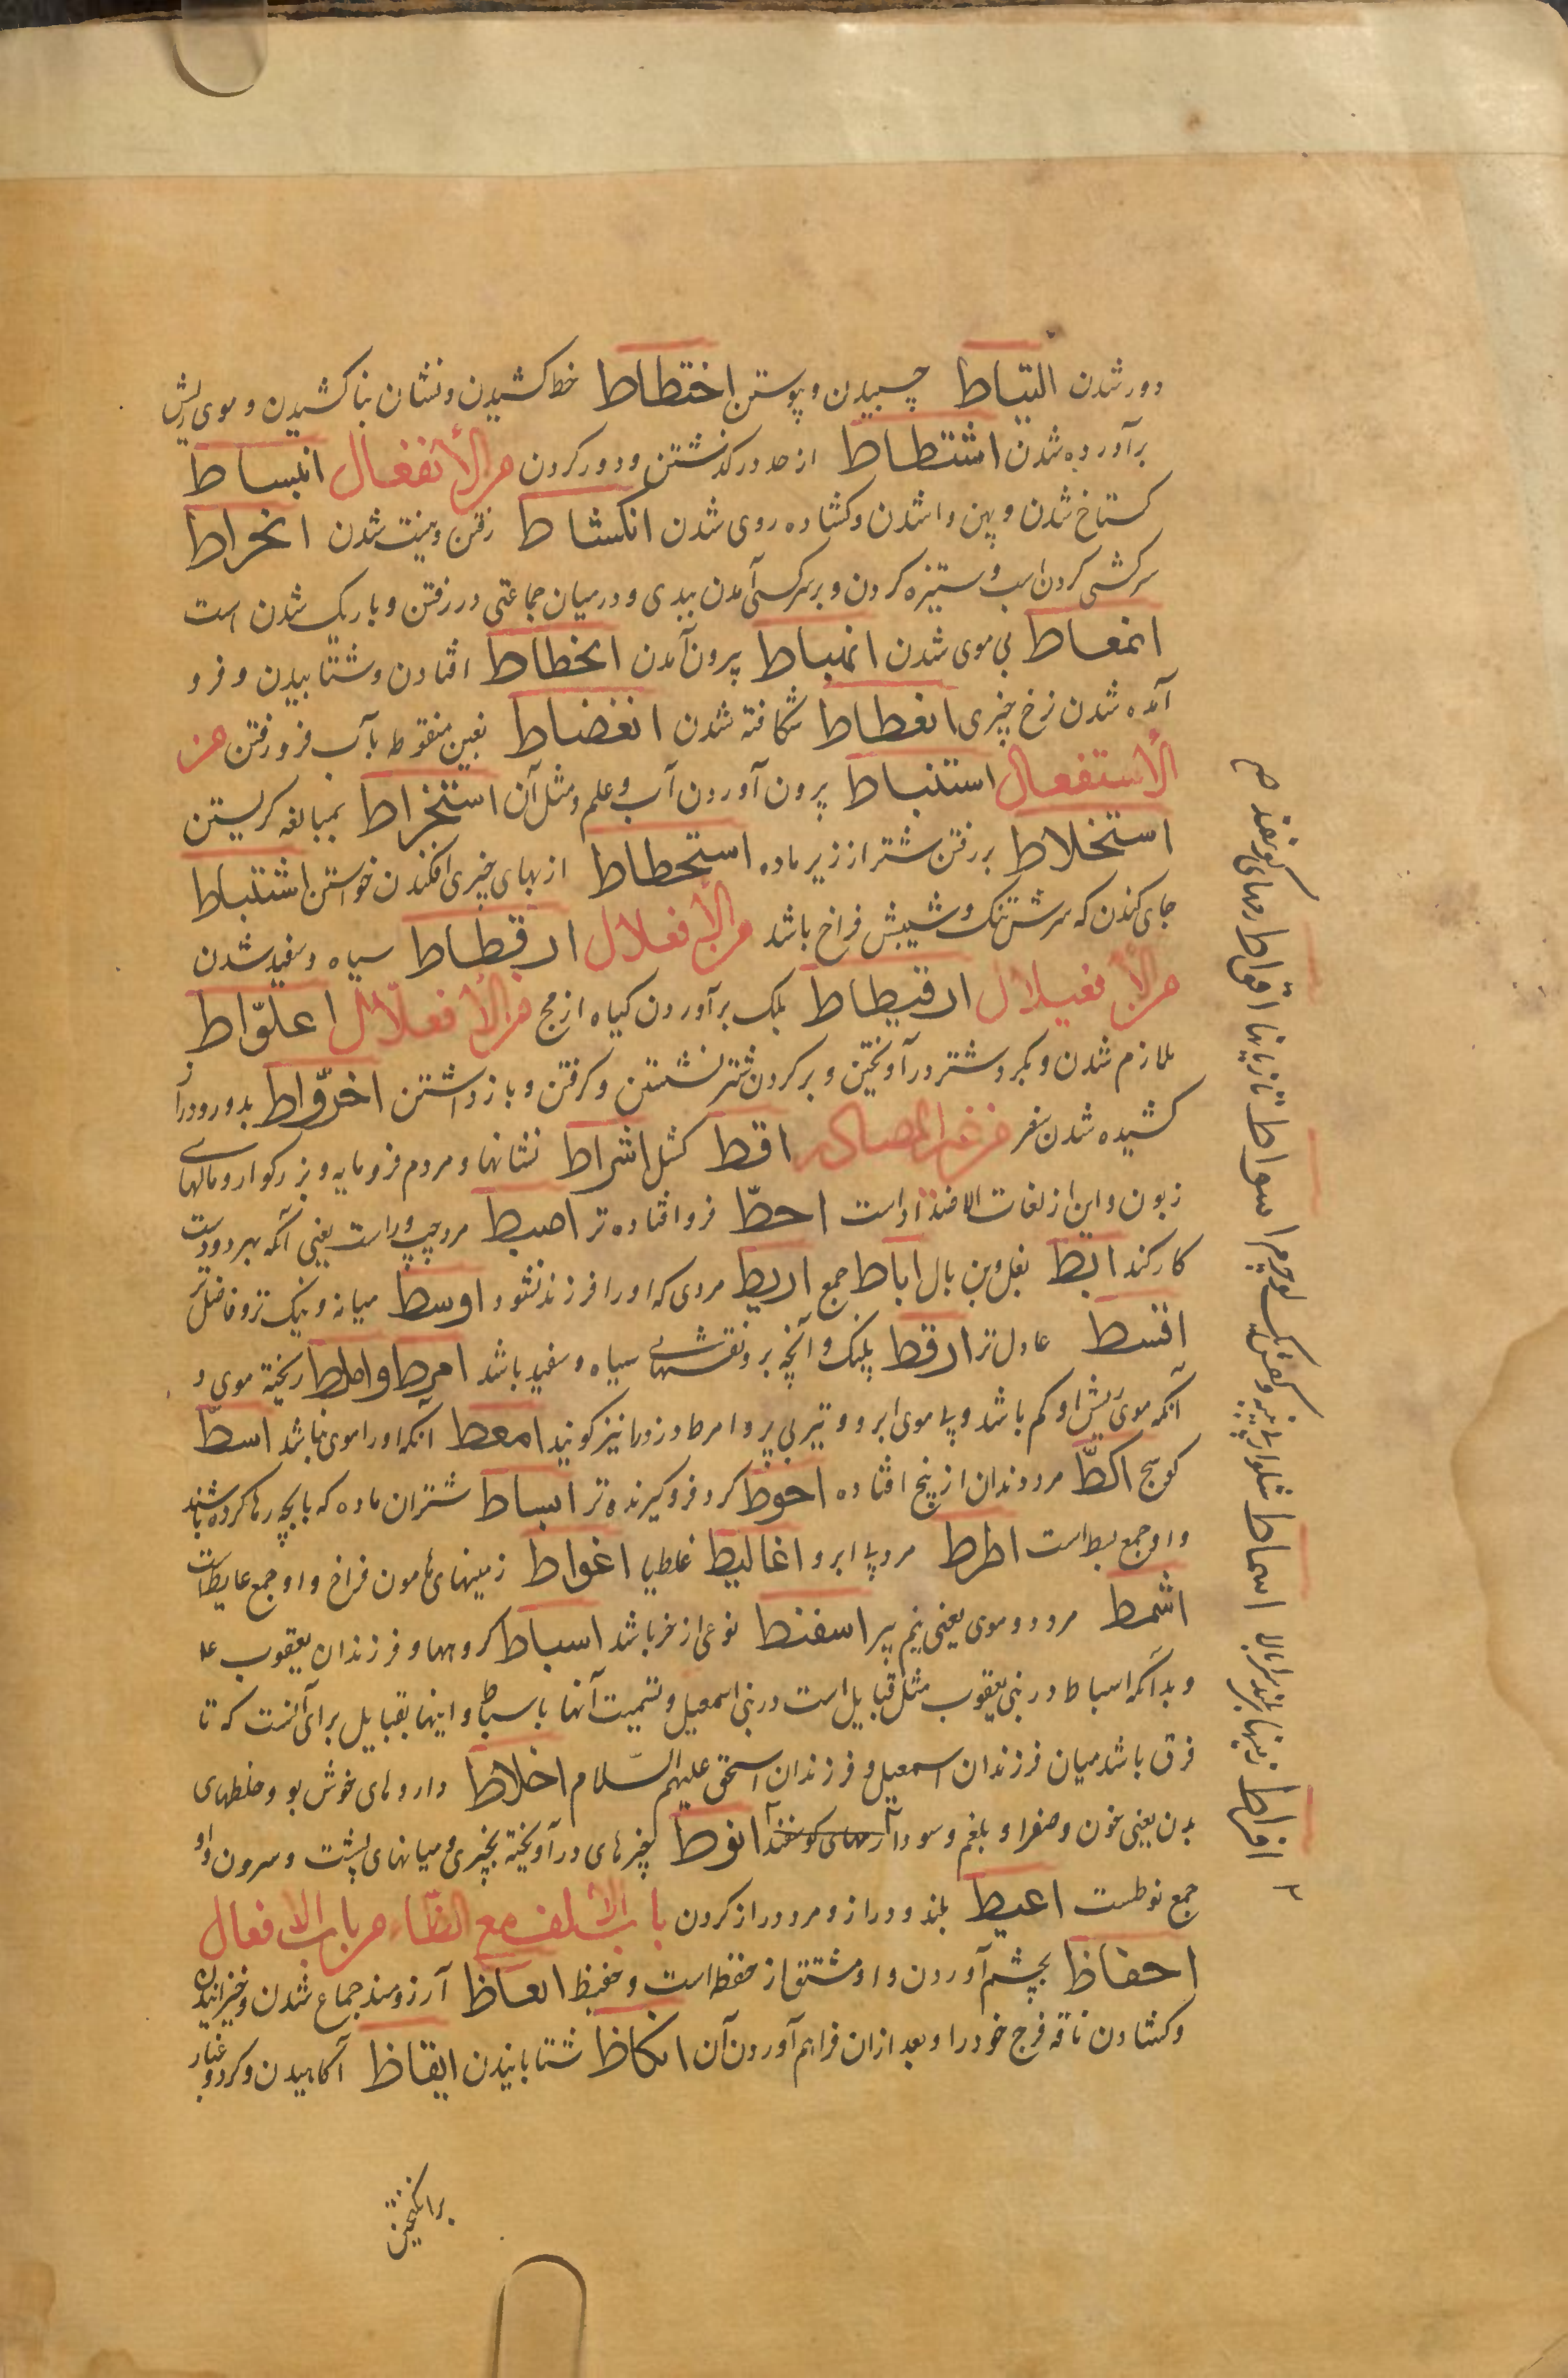 دور شدن التیاط چسپیدن و پیوستن اختطاط خط کشیدن و نشان بنا کشیدن و موی ریش
برآورده شدن اشتطاط از حد در گذشتن و دور کردن من الأنفعال انبساط
کستاخ شدن و پهن وا شدن و کشاده روی شدن انکشاط رفتن و نیت شدن انخراط
سرکشی کردن اسب و ستیزه کردن و بر سر کسی آمدن ببدی و در میان جماعتی در رفتن و باریک شدن است
انمعاط بی موی شدن انمباط بیرون آمدن انحطاط افتادن و شتابیدن و فرو
آمده شدن نرخ چیزی انعطاط شکافته شدن انغضاط بغین منقوطه بآب فرو رفتن من
الأستفعال استنباط بیرون آوردن آب و علم و مثل آن استخراط بمبالغه کریستن
استخلاط بر رفتن شتر از زیر ماده استحطاط از بهای چیزی افکندن خواستن اشتباط
جای کندن که سرش تنک و شیبش فراخ باشد من الأفعلال ارقطاط سیاه و سفید شدن
من الأفعیلال ارقیطاط بلک برآوردن کیاه ازمج من الأفعلّال اعلوّاط
ملازم شدن و بکردن شتر درآویختن و بر کردن شتر نشستن و کرفتن و باز داشتن اخروّاط بدور و دراز
کشیده شدن سفر من غیر المصادر اقط کشل اشراط نشانها و مردم فرومایه و بزرکوار و مالهای
زبون و این از لغات الاضداد است احطّ فرو افتاده تر اضبط مرد چپ و راست یعنی آنکه بهر دو دست
کار کند ابط بغل و بن بال اباط جمع اربط مردی که او را فرزند نشود اوسط میانه و نیک تر و فاضل تر
اقسط عادل تر ارقط پلنک و آنچه برو نقشهای سیاه و سفید باشد امرط و املط ریخته موی و
آنکه موی ریش او کم باشد و بی موی ابرو و تیر بی پر و امرط دزد را نیز کویند امعط آنکه او را موی نباشد اسطّ
کوسج اکطّ مرد دندان از بیخ افتاده احوط کرد فرو کیرنده تر ابساط شتران ماده که با بچه رها کرده باشند
و او جمع بسط است اطرط مرد بی ابرو اغالیط غلطها اغواط زمینهای هامون فراخ و او جمع غایط است
اشمط مرد دو موی یعنی نیم پیر اسفنط نوعی از خمر باشد اسباط کروهها و فرزندان یعقوب ع
و بدآنکه اسباط در بنی یعقوب مثل قبایل است در بنی اسمعیل و تسمیت آنها باسباط و اینها بقبایل برای آنست که تا
فرق باشد میان فرزندان اسمعیل و فرزندان اسحق علیهم السّلام اخلاط داروهای خوش بو و خلطهای
بدن یعنی خون و صفرا و بلغم و سودا رمهای کوسفند انوط چیزهای درآویخته بچیزی و میانهای پشت و سرون و او
جمع نوطست اعیط بلند و دراز و مرد دراز کردن باب الألف مع الظّاء من باب الافعال
احفاظ بچشم آوردن و او مشتق از حفظ است و حفیظ انعاظ آرزومند جماع شدن و خیزانیدن
و کشادن ناقه فرج خود را و بعد از ان فراهم آوردن آن انکاظ شتابانیدن ایقاظ آکاهیدن و کرد و غبار
برانکیختن
۲ افراط اسماط اسواط تازیانها اقواط رمهای کوسفند صح